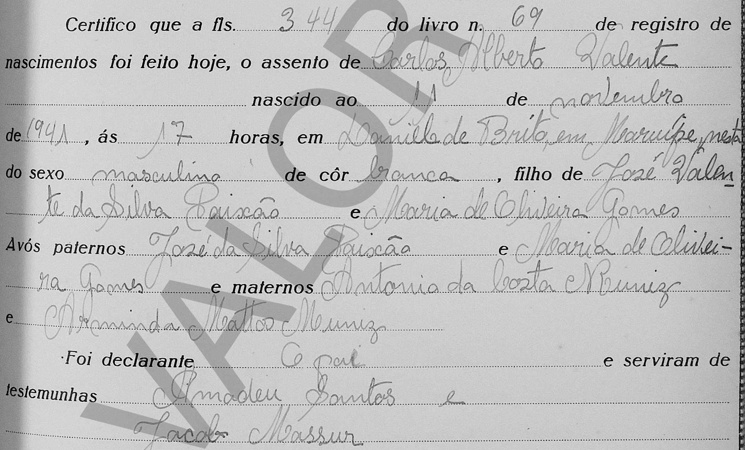 Certifico que a fls. 344 do livro n. 69 de registro de
nascimentos foi feito hoje, o assento de Carlos Alberto Valente
nascido ao 11 de novembro
de 1941, ás 17 horas, em Danille de Brito, em Maruipe, nesta
do sexo masculino de côr branca, filho de José Valen
te da Silva Paixão e Maria de Oliveira Gomes
Avós paternos José da Silva Paixão e Maria de Olivei-
ra Gomes e maternos Antonia da Costa Muniz
e Arminda Mattos Muniz
Foi declarante O pai e serviram de
testemunhas Amadeu Santos e
Jacob Massur
VALOR